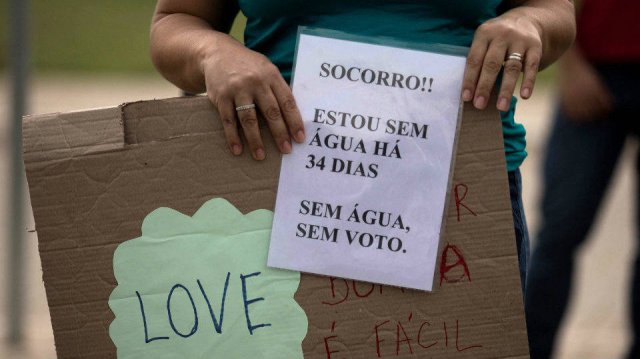 SOCORRO!!
ESTOU SEM
ÁGUA HÁ
34 DIAS
SEM ÁGUA,
SEM VOTO.
LOVE
É FÁCIL